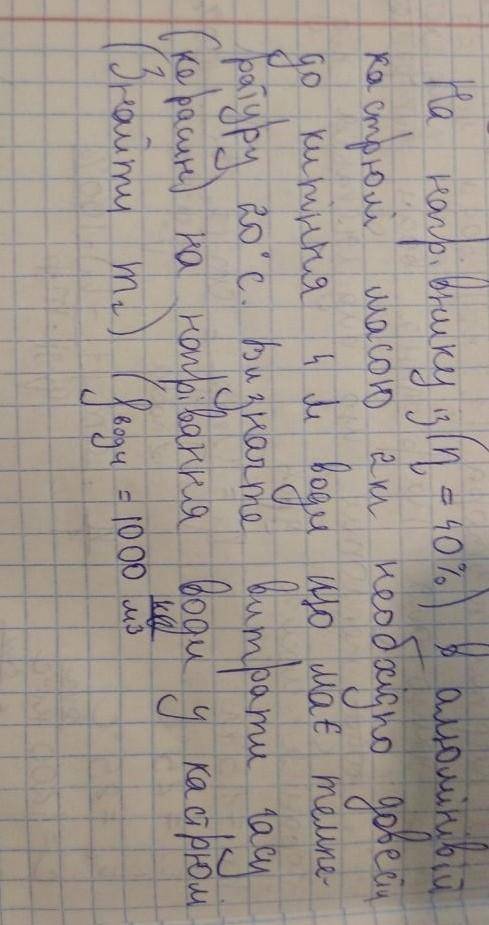 На нагрівнику з (η = 40%) в алюмінієвій
каструлі масою 2кг необхідно довести
до кипіння 4 л води що має темпе-
ратуру 20°С. Визначте витрати часу
(керасин) на нагрівання води у каструлі
(Знайти m₂) (ρ води = 1000 кг/м3